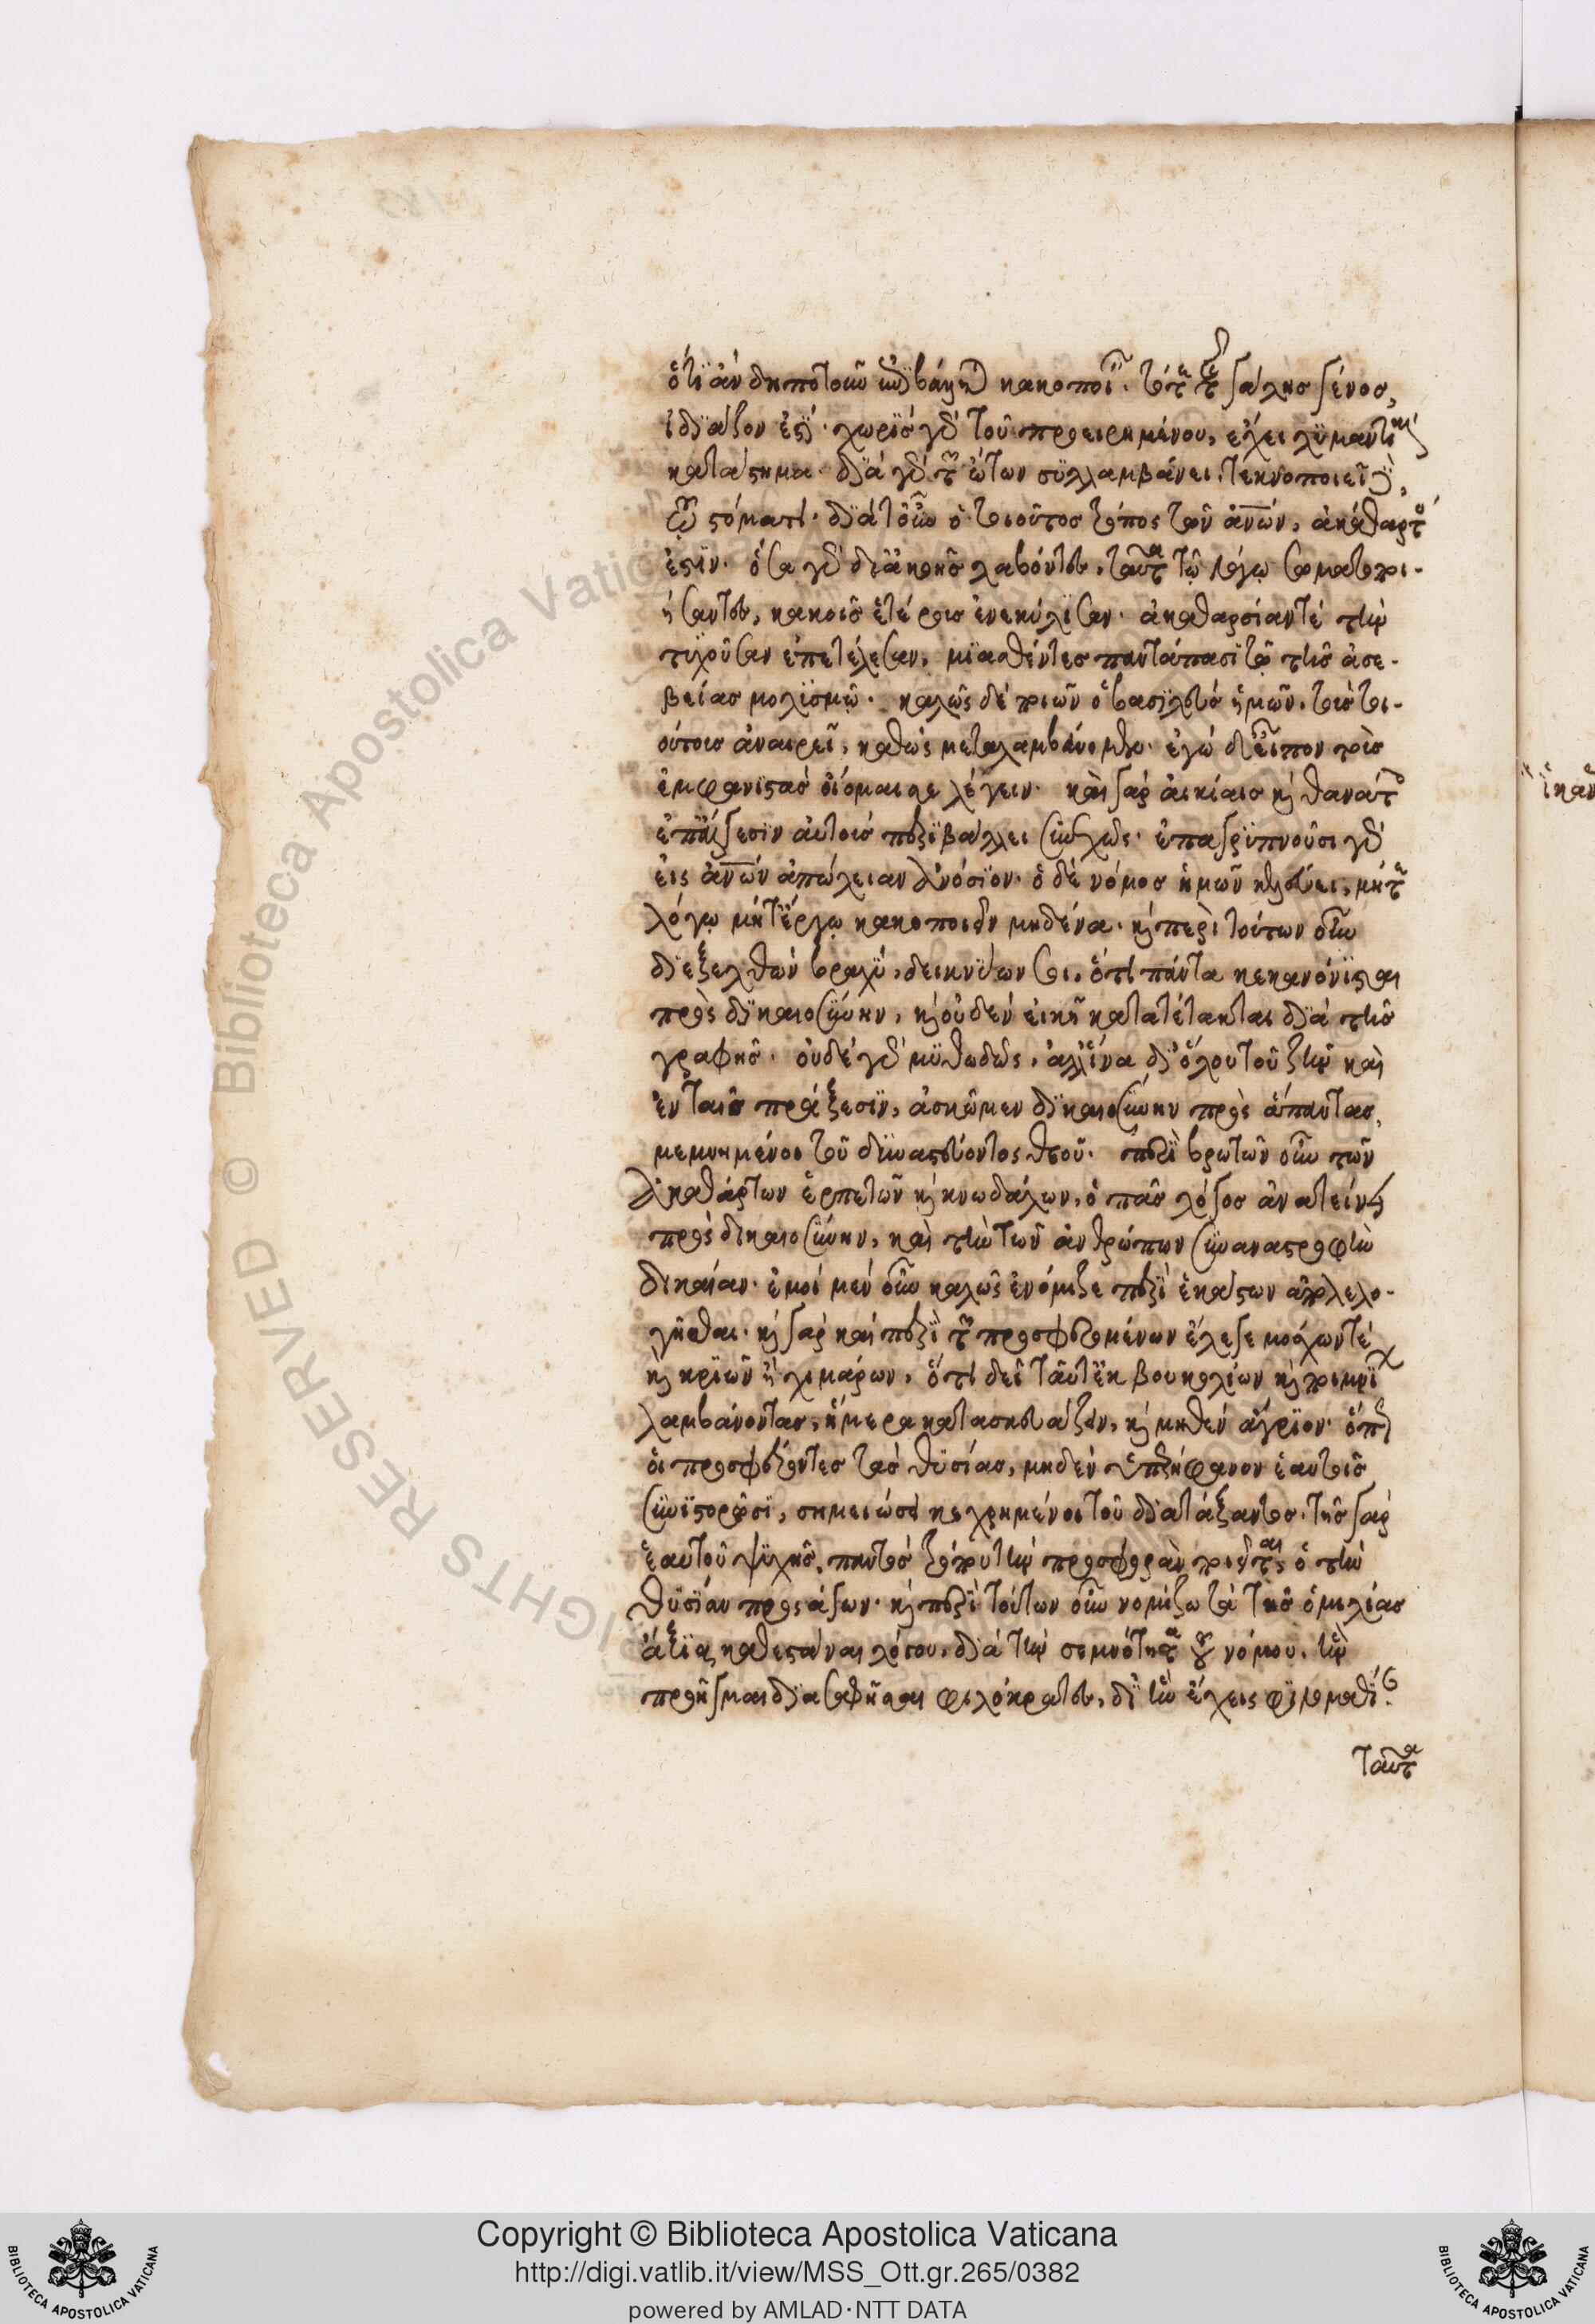 ὅ,τι ἂν δηποτοῦν ἐπιβάληται κακοποιεῖν. τό τε τῆς γαλῆς γένος,
ἰδιάζον ἐστί· χωρὶς γὰρ τοῦ προειρημένου, ἔχει λυμαντικὸν
κατάστημα· διὰ γὰρ τῶν ὤτων συλλαμβάνει, τεκνοποιεῖ δὲ
τῷ στόματι· διὰ τοῦτο ὁ τοιοῦτος τρόπος τῶν ἀνων, ἀκάθαρτος
ἐστιν. ὅσα γὰρ δι' ἀκοῆς λαβόντες, ταῦτα τῷ λόγῳ σωματοποι-
ήσαντες, κακοῖς ἑτέρους ἐνεκύλισαν. ἀκαθαρσίαν τὲ τὴν
τυχοῦσαν ἐπετέλεσαν, μιανθέντες παντάπασι τῷ τῆς ἀσε-
βείας μολισμῷ. καλῶς δὲ ποιῶν ὁ βασιλεὺς ἡμῶν, τοὺς τοι-
ούτους ἀναιρεῖ, καθὼς μεταλαμβάνομεν. ἐγὼ δ' εἶπον τοὺς
ἐμφανιστὰς οἴομαι σε λέγειν. καὶ γὰρ αἰκίαις καὶ θανάτοις
ἐπαλγέσιν αὐτοὺς περιβάλλει συνεχῶς. ἐπαγρυπνοῦσι γὰρ
εἰς ἀνων ἀπώλειαν ἀνόσιον. ὁ δὲ νόμος ἡμῶν κελεύει, μήτε
λόγῳ μήτ' ἔργῳ κακοποιεῖν μηδένα. καὶ περὶ τούτων οὖν
διεξελθὼν βραχὺ, δεικνύων σοι, ὅτι πάντα κεκανόνισται
πρὸς δικαιοσύνην, καὶ οὐδὲν εἰκῆ κατατέτακται διὰ τῆς
γραφῆς. οὐδὲ γὰρ μυθωδῶς, ἀλλ' ἵνα δι' ὅλου τοῦ ζῆν καὶ
ἐν ταῖς πράξεσιν, ἀσκῶμεν δικαιοσύνην πρὸς ἅπαντας,
μεμνημένοι τοῦ δυναστεύοντος θεοῦ. περὶ βρωτῶν οὖν τῶν
ἀκαθάρτων ἑρπετῶν καὶ κνωδάλων, ὁ πᾶς λόγος ἀνατείνει
πρὸς δικαιοσύνην, καὶ τὴν τῶν ἀνθρώπων συναναστροφὴν
δικαίαν. ἐμοὶ μὲν οὖν καλῶς ἐνόμιζε περὶ ἑκάστων ἀπολελο-
γῆσθαι. καὶ γὰρ καὶ περὶ τῶν προσφερομένων ἔλεγε μόσχων τέ
καὶ κριῶν καὶ χιμάρων, ὅτι δεῖ ταῦτ' ἐκ βουκολίων καὶ ποιμνίων
λαμβάνοντας, ἥμερα κατασκευάζειν, καὶ μηθὲν ἄγριον. ὅπως
οἱ προσφέροντες τὰς θυσίας, μηδὲν ὑπερήφανον ἑαυτοῖς
συνιστορῶσι, σημειώσει κεχρημένοι τοῦ διατάξαντος. τῆς γὰρ
ἑαυτοῦ ψυχῆς, παντὸς τρόπου τὴν προσφορὰν ποιεῖται, ὁ τὴν
θυσίαν προσάγων. καὶ περὶ τούτων οὖν νομίζω τὰ τῆς ὁμιλίας
ἄξια καθεστάναι λόγου, διὰ τὴν σεμνότητα τοῦ νόμου, ἣν
προῆγμαι διασαφῆσαι φιλόκρατες, δι' ἣν ἔχεις φιλομαθίαν.
ταῦτα
Copyright © Biblioteca Apostolica Vaticana
http://digi.vatlib.it/view/MSS_Ott.gr.265/0382
powered by AMLAD·NTT DATA